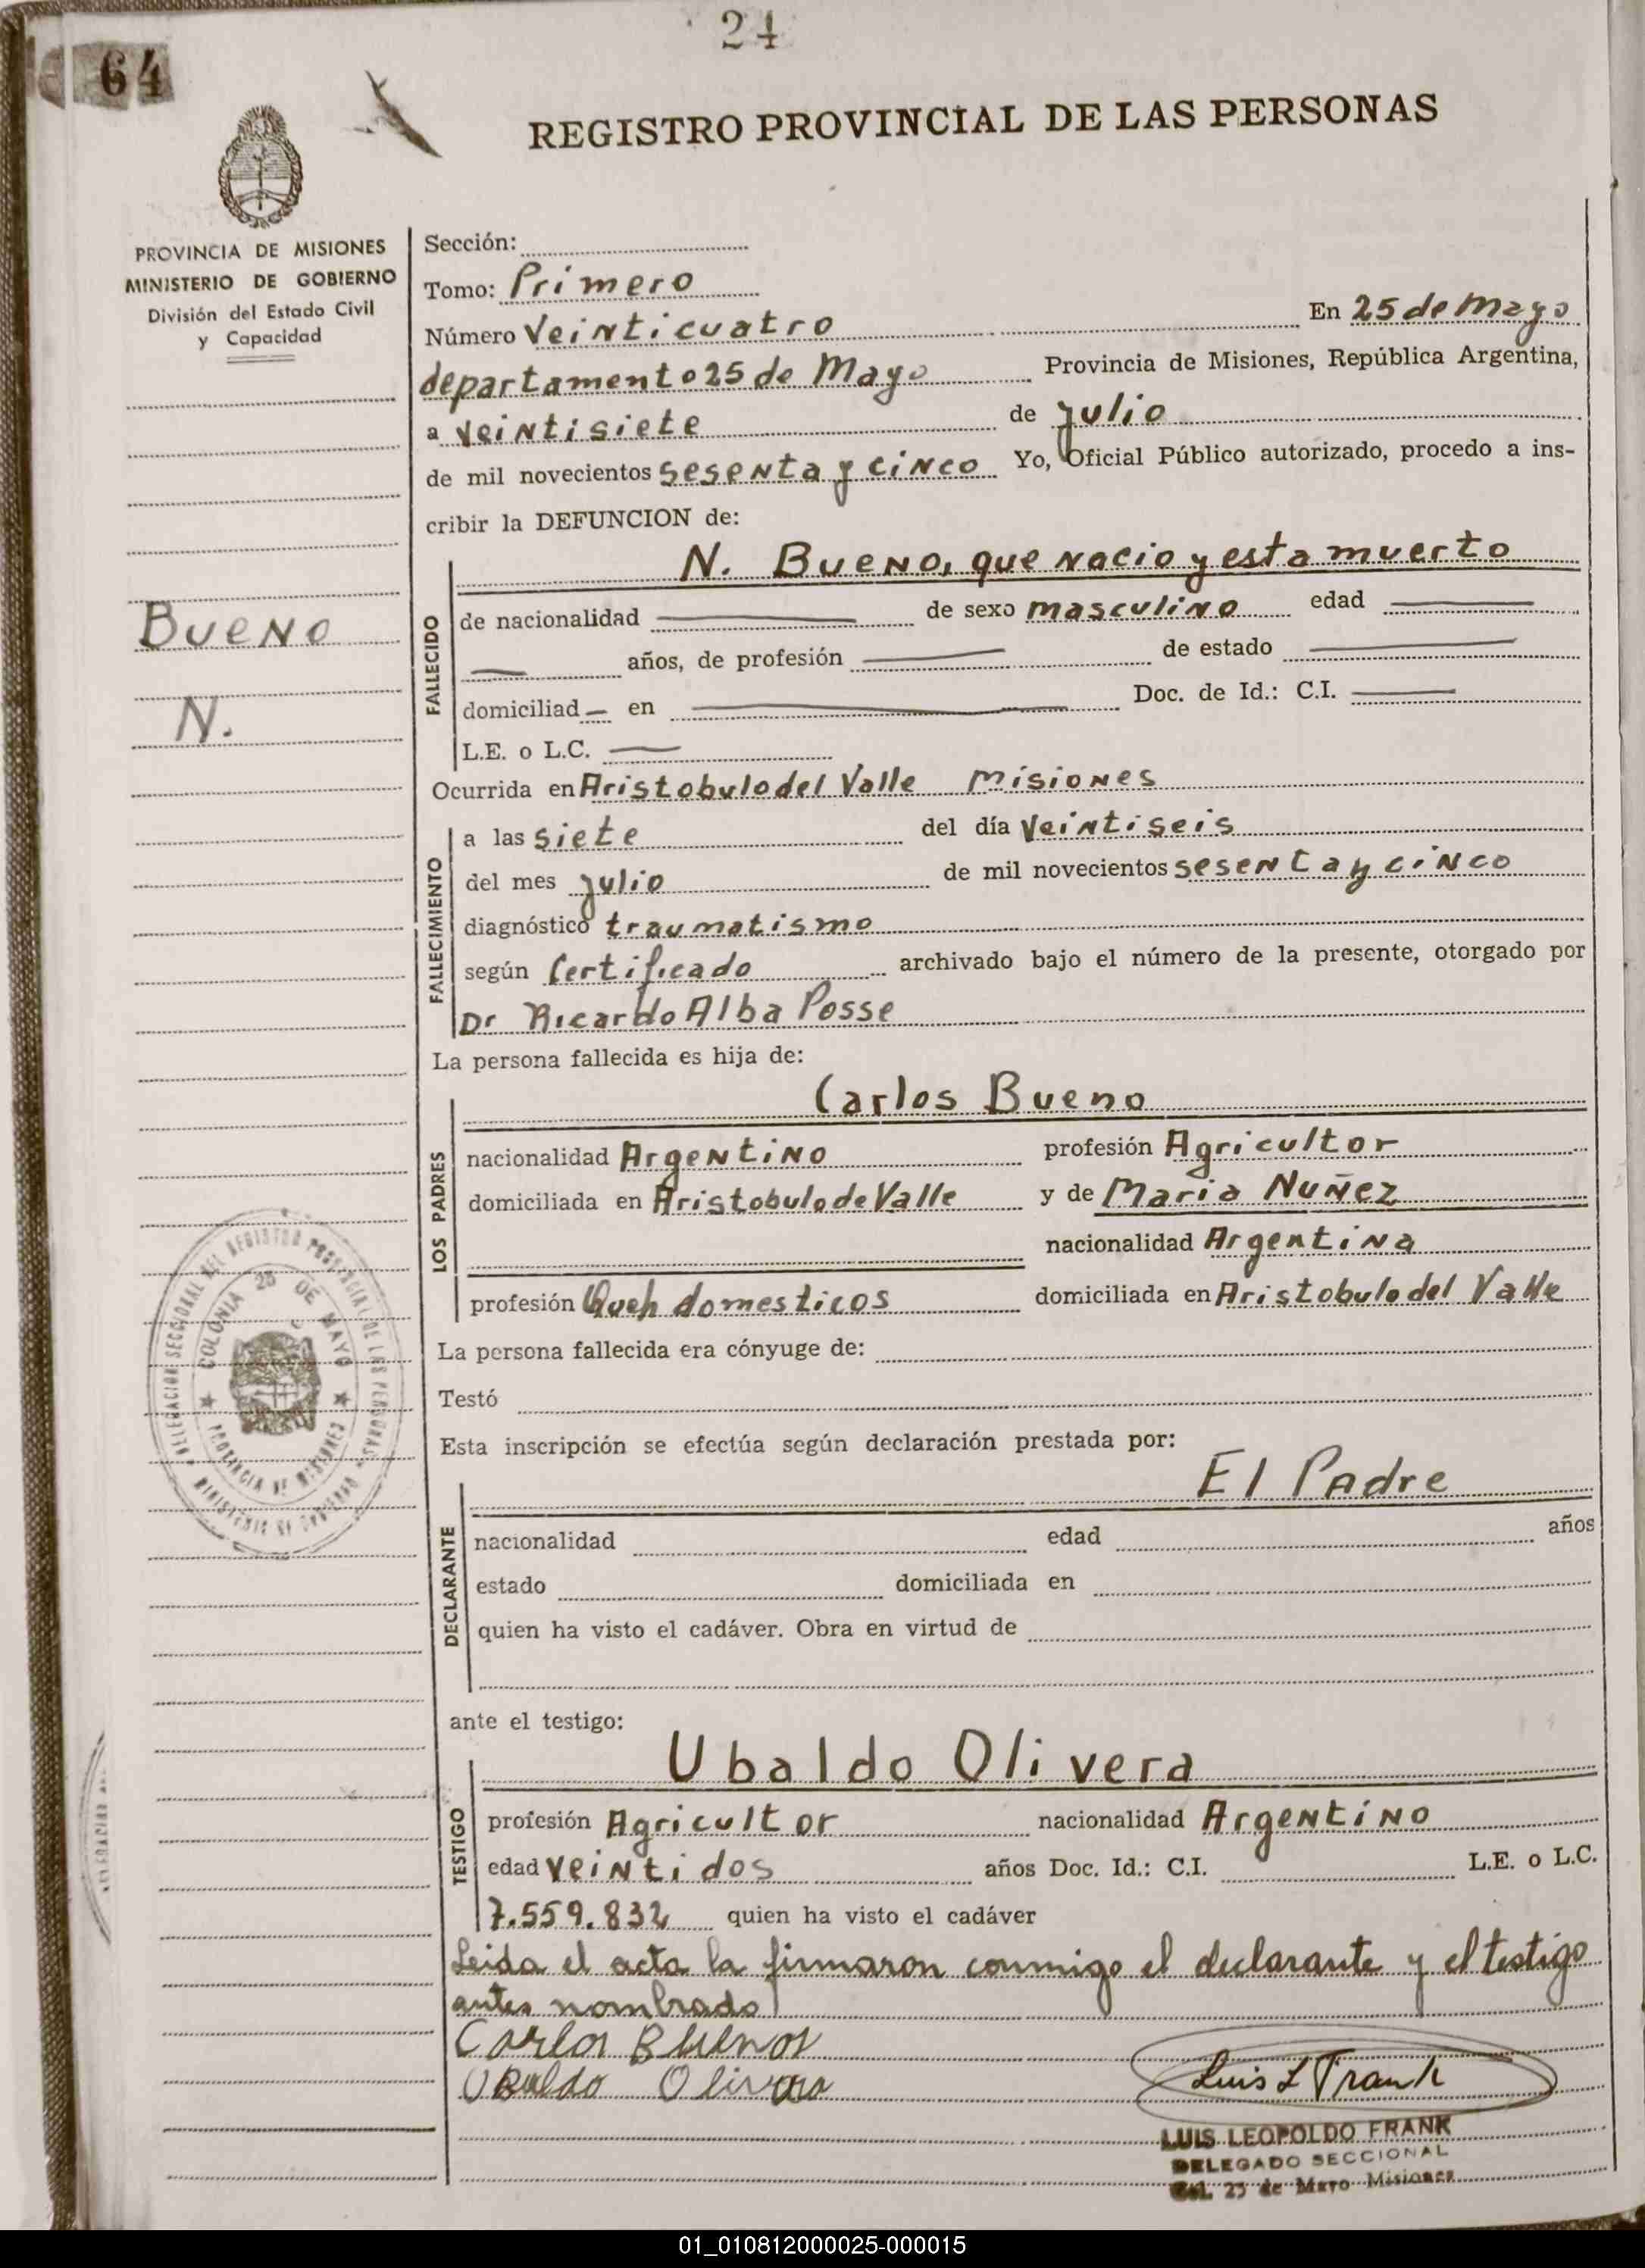 24
64
REGISTRO PROVINCIAL DE LAS PERSONAS
PROVINCIA DE MISIONES
MINISTERIO DE GOBIERNO
División del Estado Civil
y Capacidad
Bueno
N.
Sección:
Tomo: Primero
Número Veinticuatro En 25 de Mayo
departamento 25 de Mayo Provincia de Misiones, República Argentina,
a veintisiete de julio
de mil novecientos sesenta y cinco Yo, Oficial Público autorizado, procedo a ins-
cribir la DEFUNCION de:
FALLECIDO
N. Bueno, que nacio y esta muerto
de nacionalidad — de sexo masculino edad —
— años, de profesión — de estado —
domiciliad— en — Doc. de Id.: C.I. —
L.E. o L.C. —
Ocurrida en Aristobulo del Valle Misiones
FALLECIMIENTO
a las siete del día veintiseis
del mes julio de mil novecientos sesenta y cinco
diagnóstico traumatismo
según Certificado archivado bajo el número de la presente, otorgado por
Dr Ricardo Alba Posse
La persona fallecida es hija de:
LOS PADRES
Carlos Bueno
nacionalidad Argentino profesión Agricultor
domiciliada en Aristobulo de Valle y de Maria Nuñez
nacionalidad Argentina
profesión Queh domesticos domiciliada en Aristobulo del Valle
La persona fallecida era cónyuge de:
Testó
Esta inscripción se efectúa según declaración prestada por:
DECLARANTE
El Padre
nacionalidad edad años
estado domiciliada en
quien ha visto el cadáver. Obra en virtud de
ante el testigo:
TESTIGO
Ubaldo Olivera
profesión Agricultor nacionalidad Argentino
edad veintidos años Doc. Id.: C.I. L.E. o L.C.
7.559.832 quien ha visto el cadáver
Leida el acta la firmaron conmigo el declarante y el testigo
antes nombrado
Carlos Buenos
Ubaldo Olivera
Luis L Frank
LUIS LEOPOLDO FRANK
DELEGADO SECCIONAL
Col. 25 de Mayo Misiones
DELEGACION SECCIONAL DEL REGISTRO PROVINCIAL DE LAS PERSONAS
MINISTERIO DE GOBIERNO
COLONIA 25 DE MAYO
PROVINCIA DE MISIONES
01_010812000025-000015